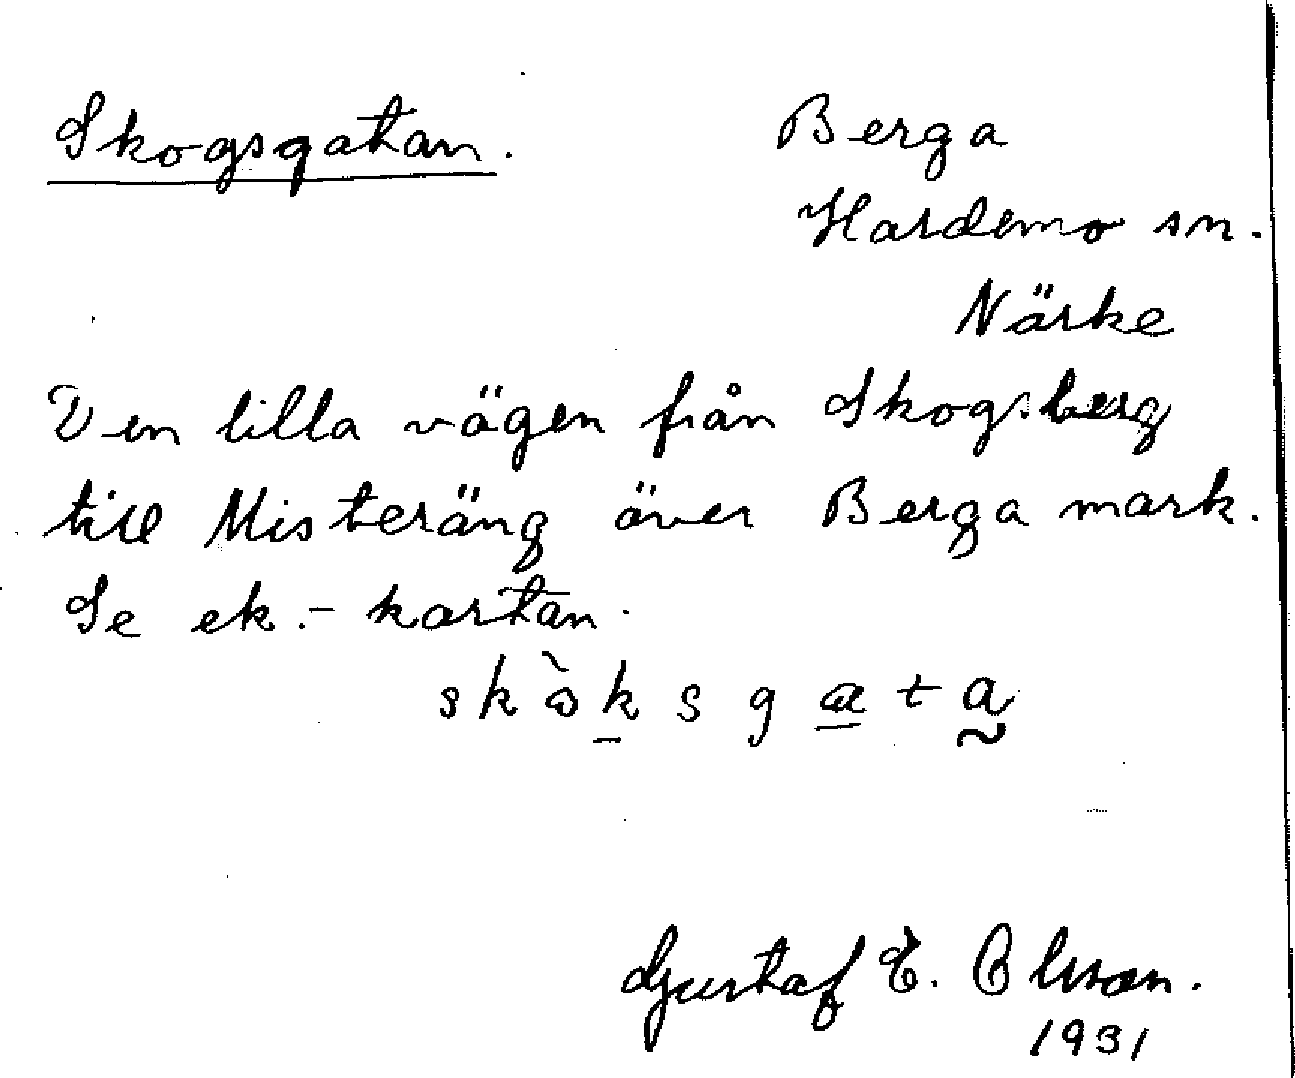 Skogsgatan.
Berga
Hardemo sn.
Närke
Den lilla vägen från Skogsberg
till Misteräng över Berga mark.
Se ek.- kartan.
skòksgata
Gustaf E. Olsson.
1931